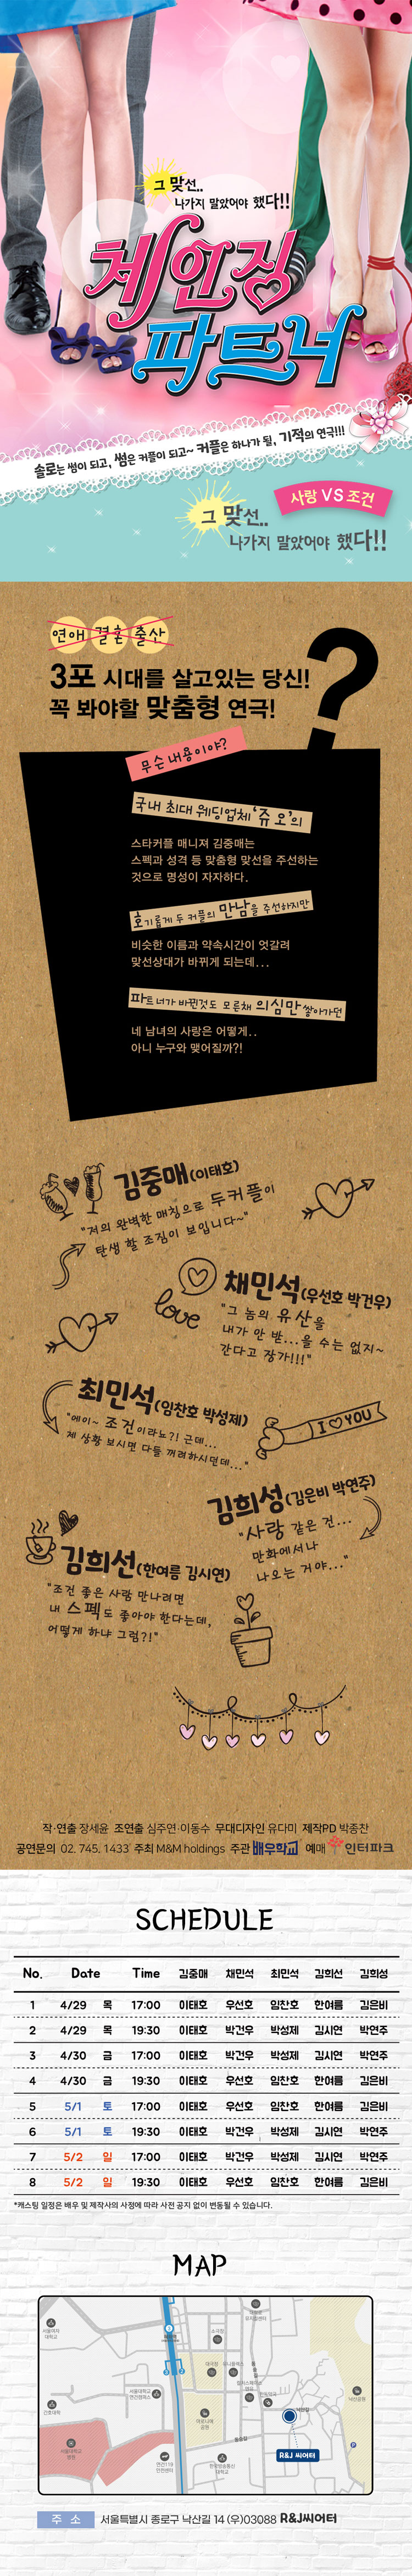 그 맞선..
나가지 말았어야 했다!!
체인징
파트너
솔로는 썸이 되고, 썸은 커플이 되고~ 커플은 하나가 될, 기적의 연극!!!
사랑 VS 조건
그 맞선..
나가지 말았어야 했다!!
연애 결혼 출산
3포 시대를 살고있는 당신!
꼭 봐야할 맞춤형 연극!
?
무슨 내용이야?
국내 최대 웨딩업체 '쥬 오'의
스타커플 매니져 김중매는
스펙과 성격 등 맞춤형 맞선을 주선하는
것으로 명성이 자자하다.
호기롭게 두 커플의 만남을 주선하지만
비슷한 이름과 약속시간이 엇갈려
맞선상대가 바뀌게 되는데...
파트너가 바뀐것도 모른채 의심만 쌓아가던
네 남녀의 사랑은 어떻게..
아니 누구와 맺어질까?!
김중매(이태호)
"저의 완벽한 매칭으로 두커플이
탄생 할 조짐이 보입니다~"
채민석(우선호 박건우)
love
"그 놈의 유산을
내가 안 받...을 수는 없지~
간다고 장가!!!"
최민석(임찬호 박성제)
"에이~ 조건이라뇨?! 근데...
제 상황 보시면 다들 꺼려하시던데..."
I ♡ YOU
김희성(김은비 박연주)
"사랑 같은 건...
만화에서나
나오는 거야..."
김희선(한여름 김시연)
"조건 좋은 사람 만나려면
내 스펙도 좋아야 한다는데,
어떻게 하냐 그럼?!"
작·연출 장세윤 조연출 심주연·이동수 무대디자인 유다미 제작PD 박종찬
공연문의 02. 745. 1433 주최 M&M holdings 주관 배우학교 예매 인터파크
SCHEDULE
No. Date Time 김중매 채민석 최민석 김희선 김희성
1 4/29 목 17:00 이태호 우선호 임찬호 한여름 김은비
2 4/29 목 19:30 이태호 박건우 박성제 김시연 박연주
3 4/30 금 17:00 이태호 박건우 박성제 김시연 박연주
4 4/30 금 19:30 이태호 우선호 임찬호 한여름 김은비
5 5/1 토 17:00 이태호 우선호 임찬호 한여름 김은비
6 5/1 토 19:30 이태호 박건우 박성제 김시연 박연주
7 5/2 일 17:00 이태호 박건우 박성제 김시연 박연주
8 5/2 일 19:30 이태호 우선호 임찬호 한여름 김은비
*캐스팅 일정은 배우 및 제작사의 사정에 따라 사전 공지 없이 변동될 수 있습니다.
MAP
서울여자
대학교
소극장
서울대학교
연건캠퍼스
마로니에
공원
낙산길
낙산공원
서울대학교
병원
한국방송통신
대학교
R&J 씨어터
주 소 서울특별시 종로구 낙산길 14 (우)03088 R&J씨어터